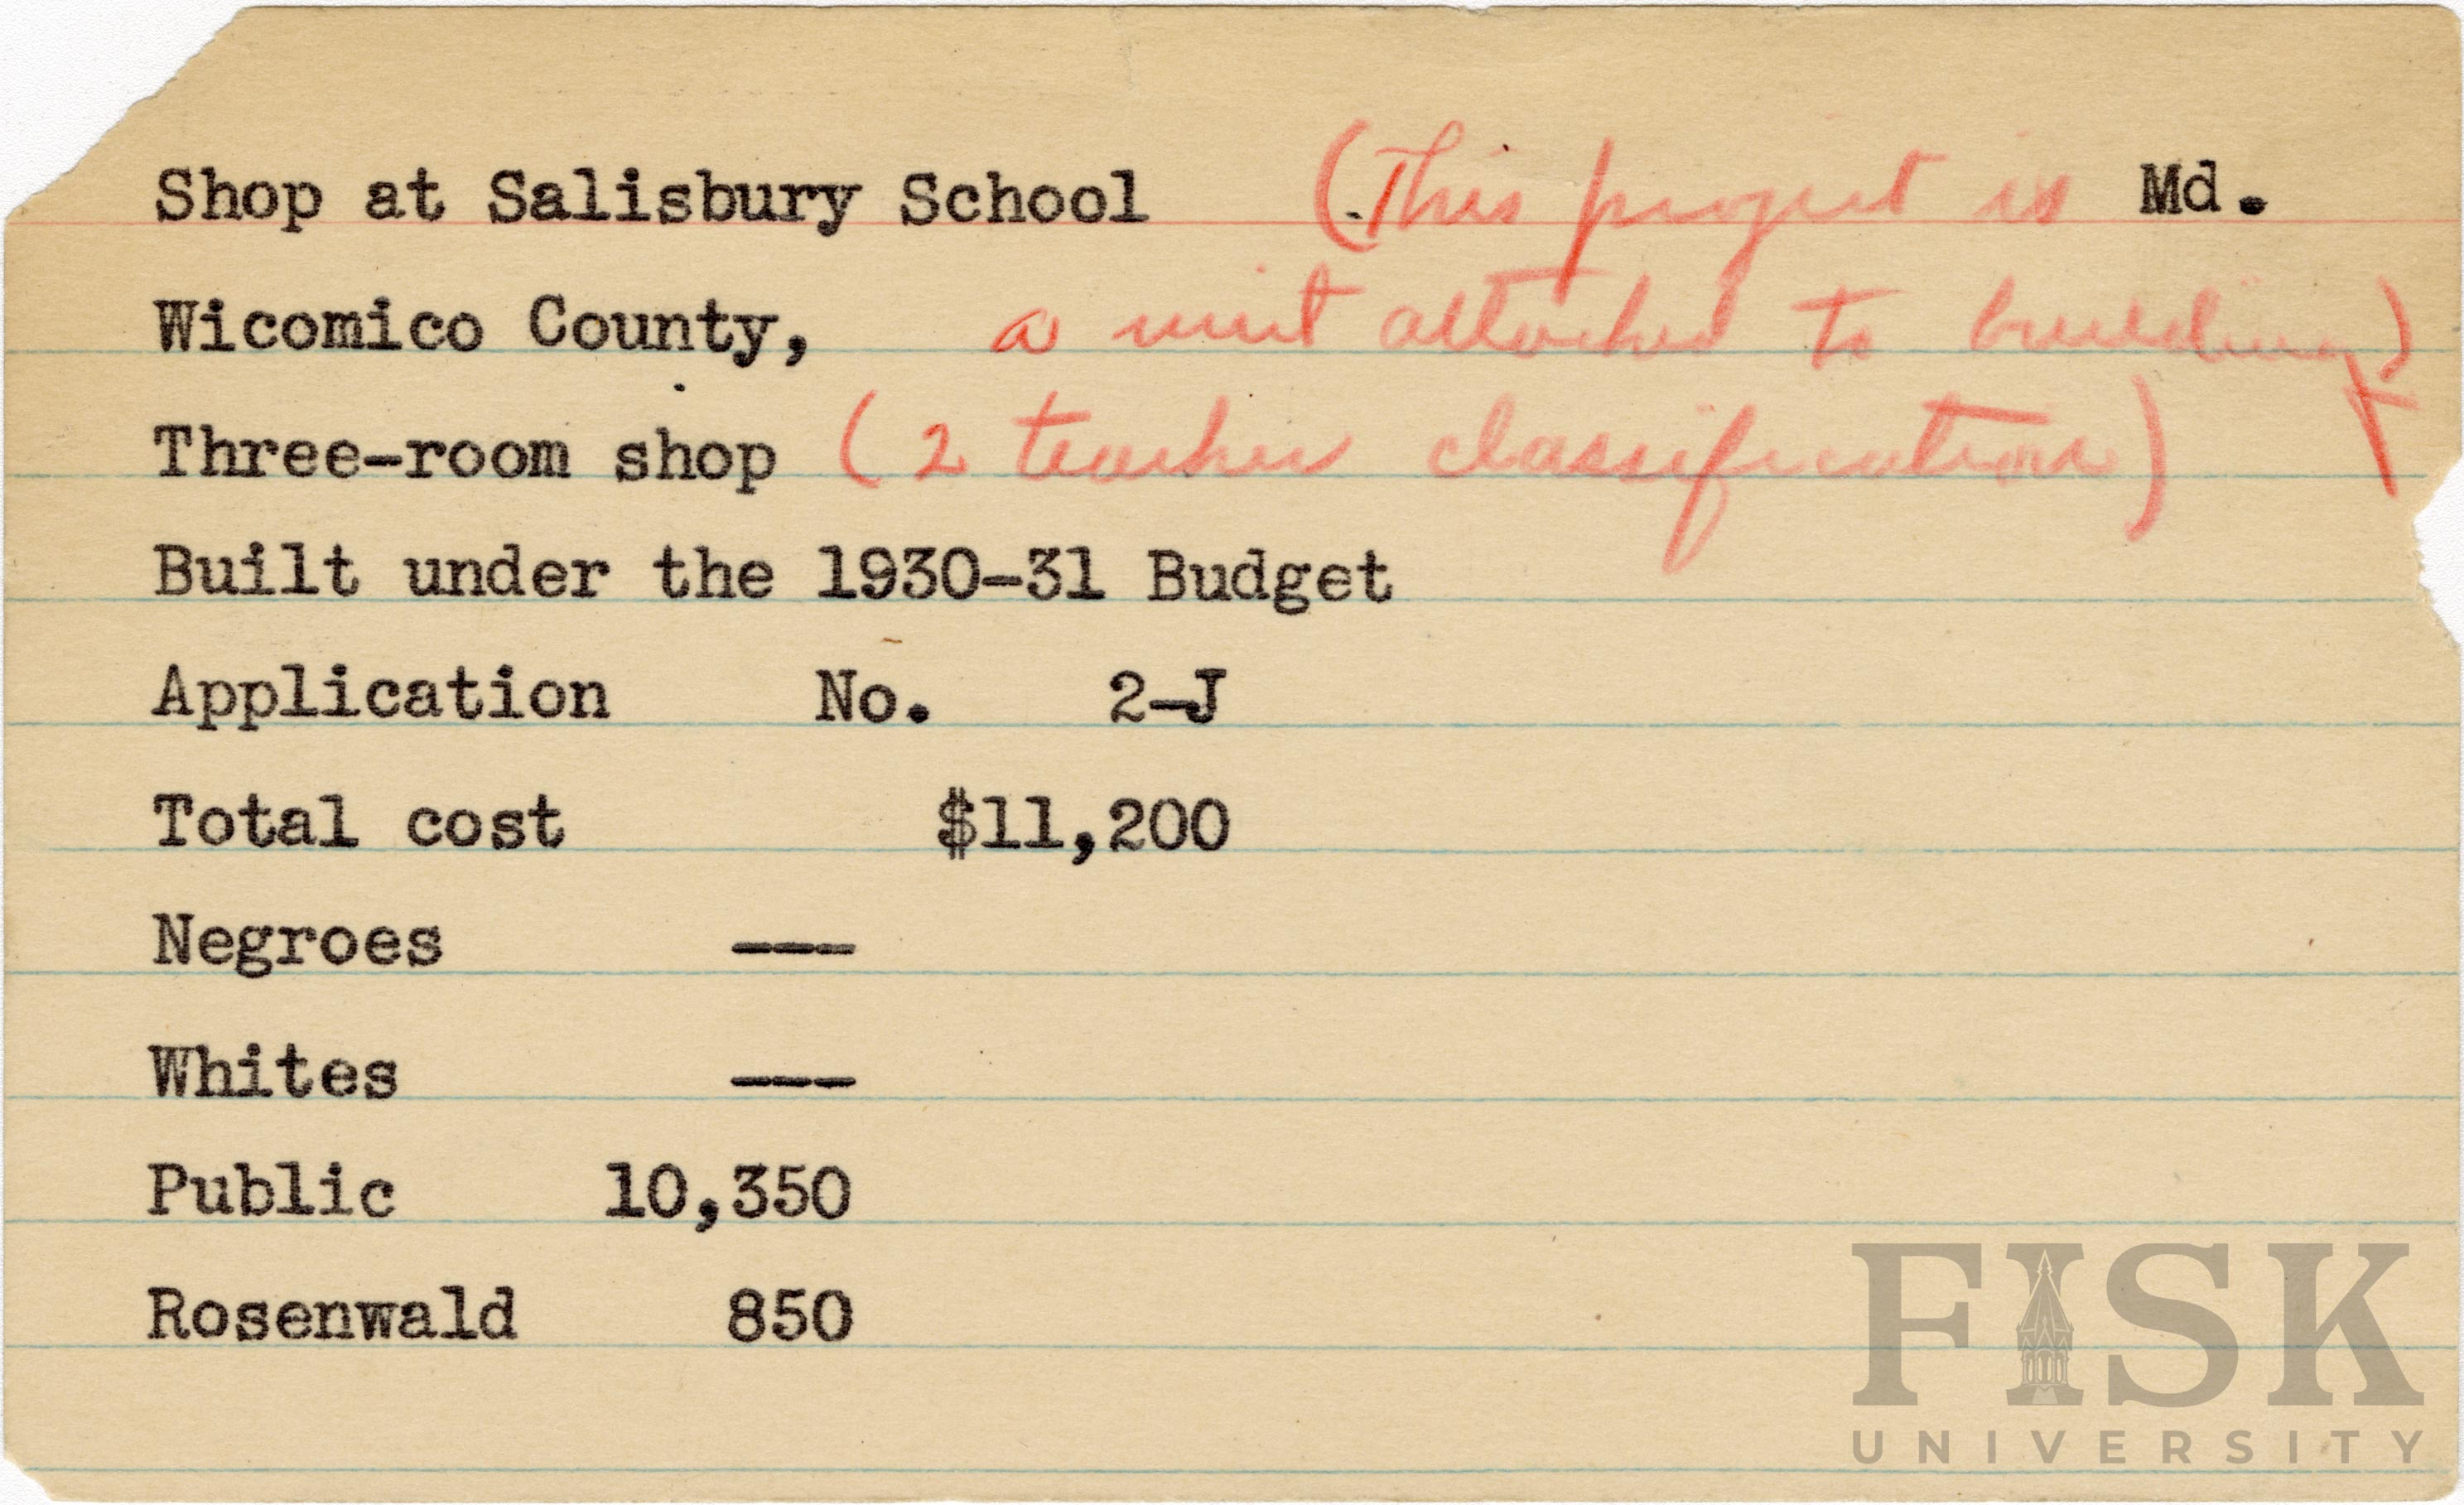 Shop at Salisbury School (This project is Md.
Wicomico County, a unit attached to building)
Three-room shop (2 teacher classification)
Built under the 1930-31 Budget
Application No. 2-J
Total cost $11,200
Negroes ---
Whites ---
Public 10,350
Rosenwald 850
FISK
UNIVERSITY